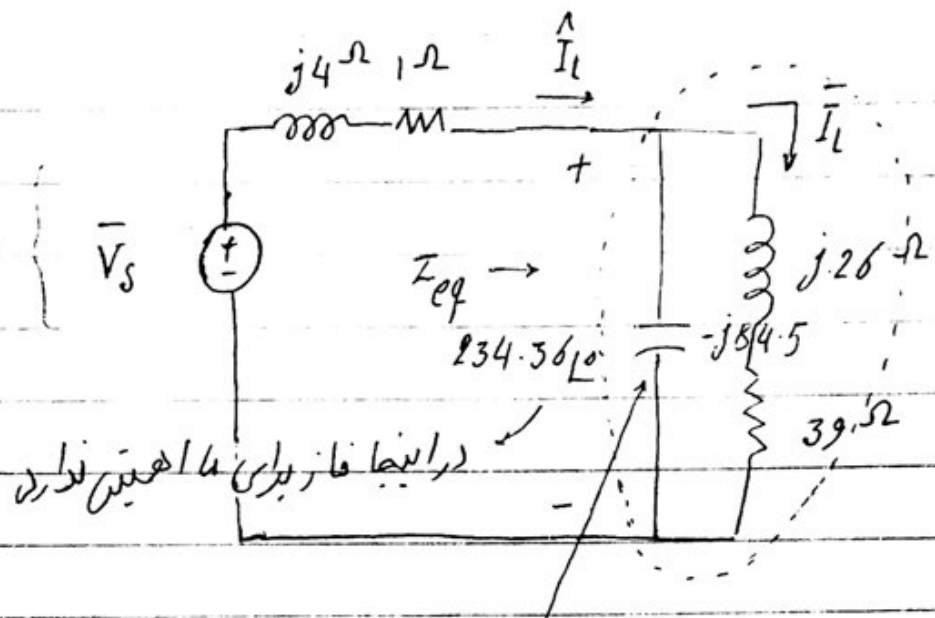 j4Ω 1Ω
Î_L
Ī_L
+
V̄_s
+
-
Z_eq →
j26 Ω
234.36∠0°
-j84.5
39Ω
در اینجا فاز برای ما اهمیتی ندارد
-